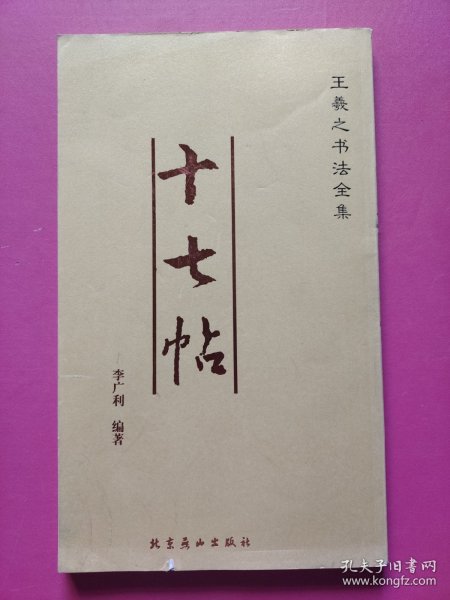 王羲之书法全集
十七帖
李广利 编著
北京燕山出版社
孔夫子旧书网
www.kongfz.com